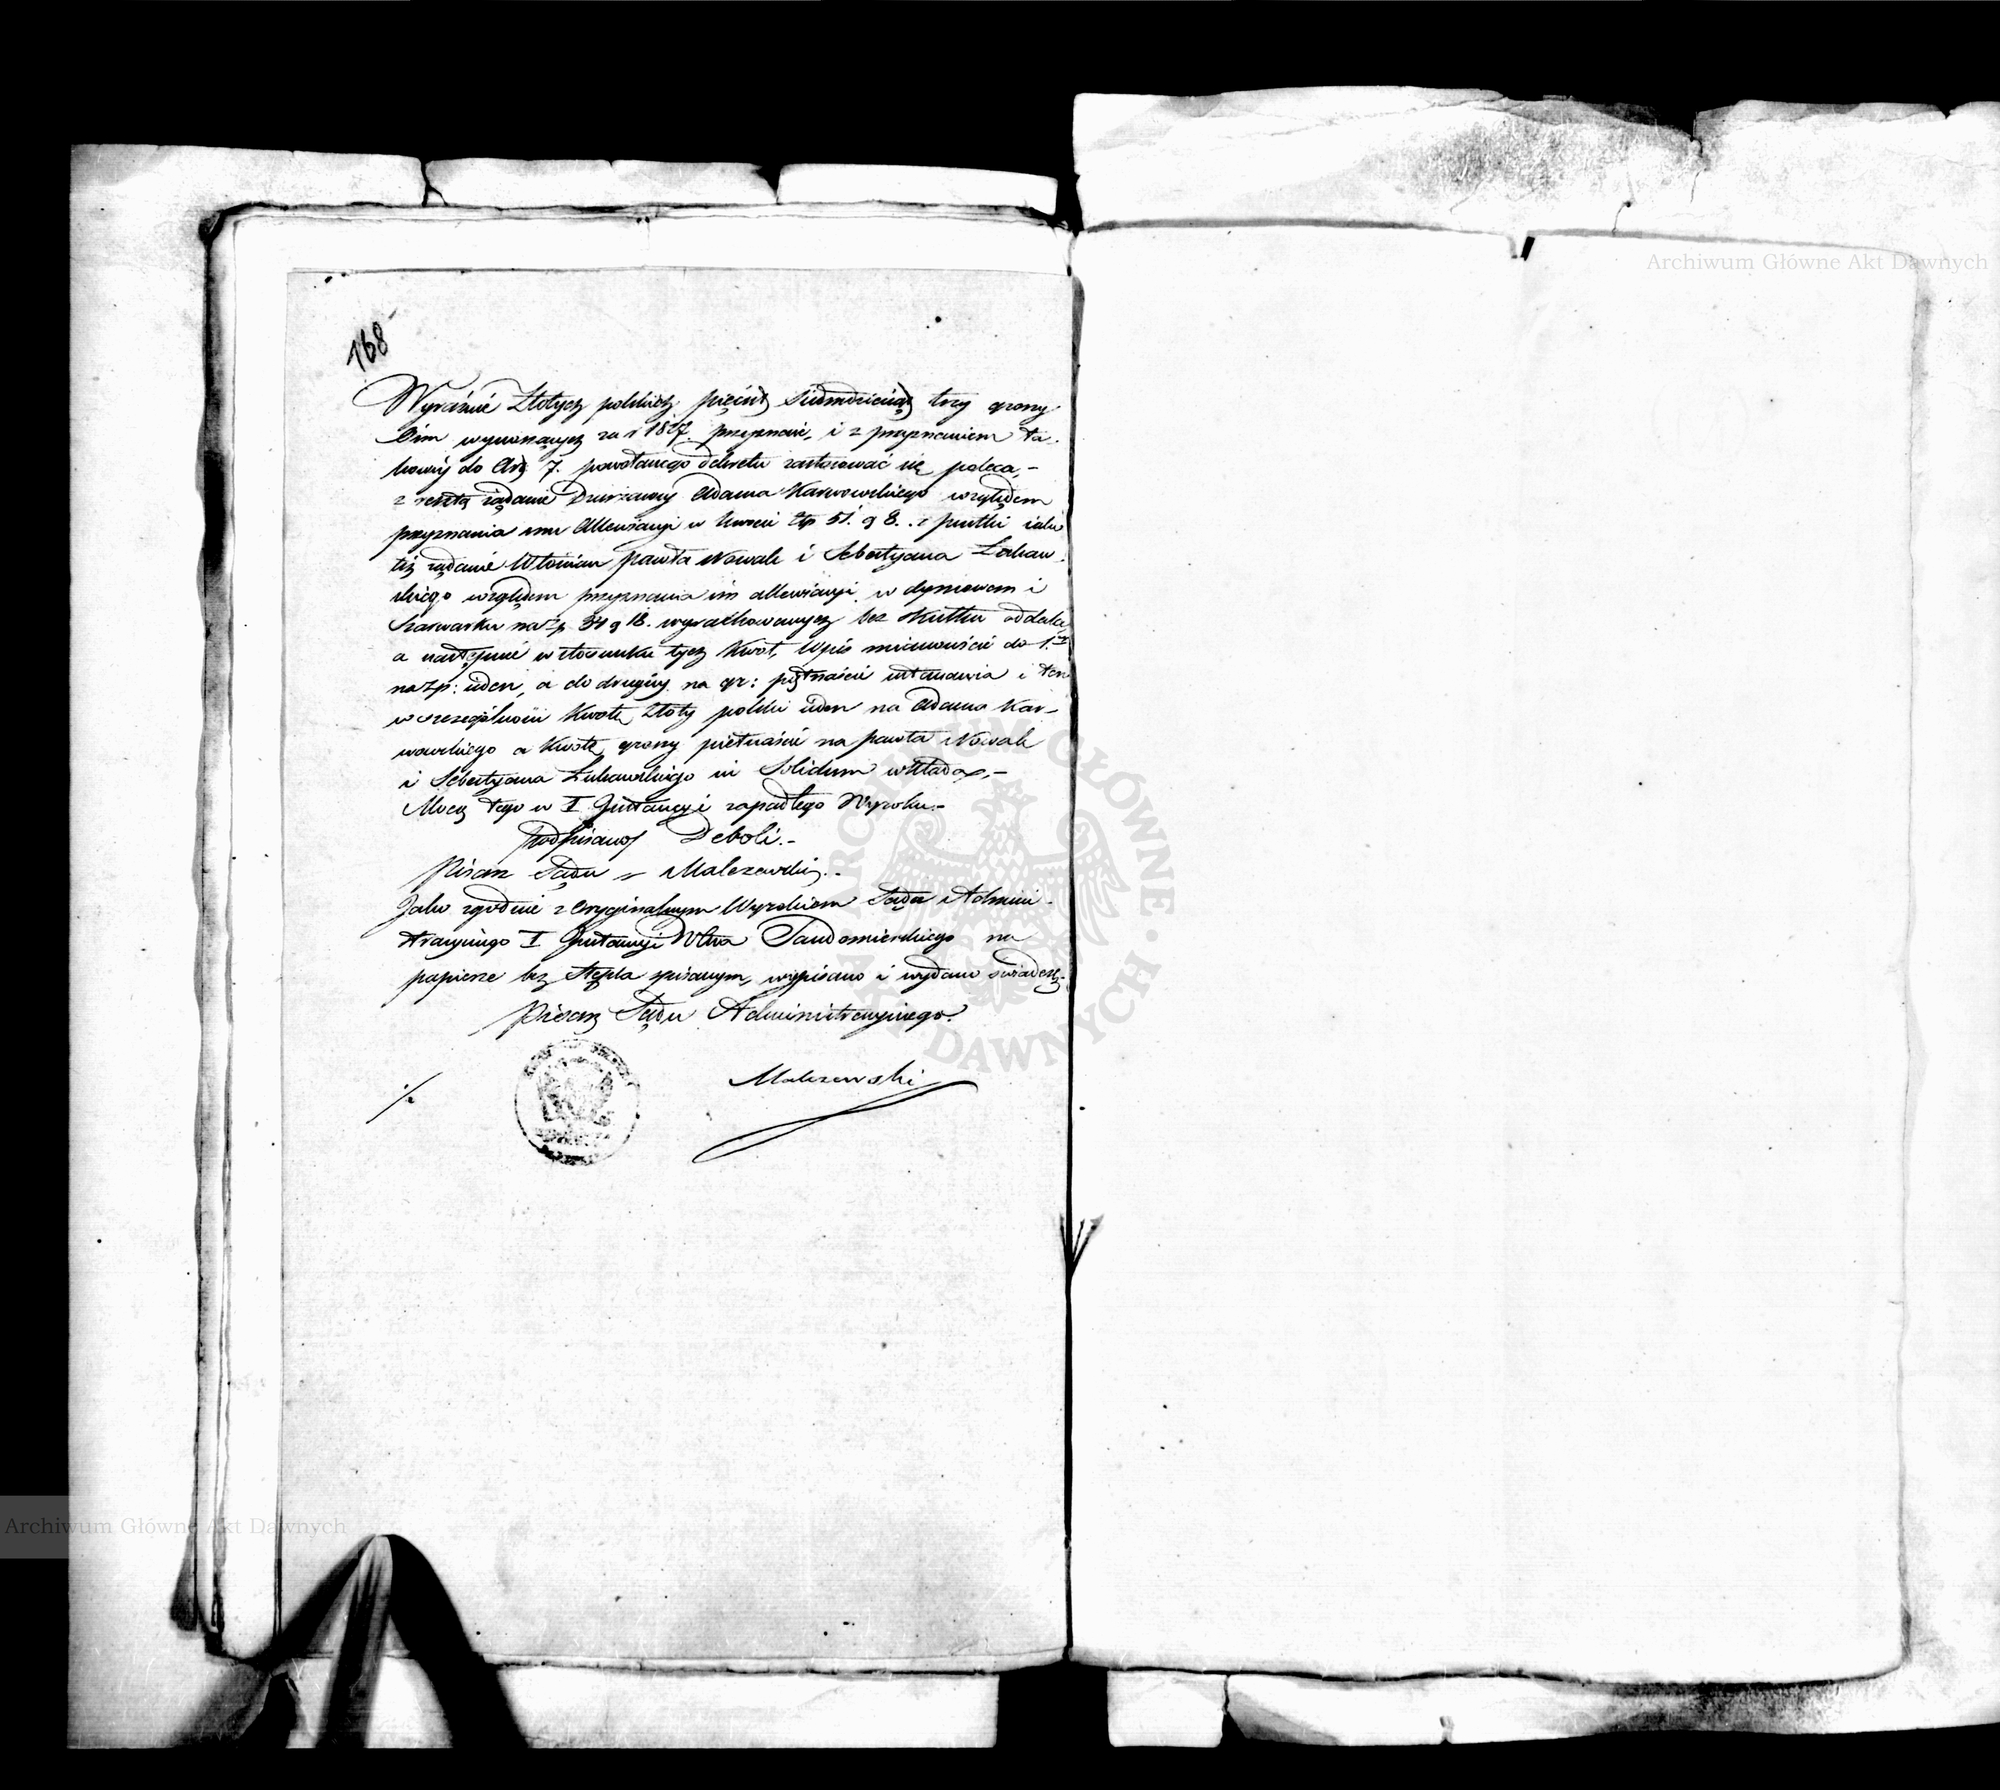 168
Wyraźnie Złotych polskich pięćset Siedmdziesiąt trzy groszy
Ośm wynoszących za r 1827. przyznaie, i z przyznaniem ta-
kowéy do Art 7. powołanego Dekretu zastosować się poleca,-
z resztą żądanie Dzierżawcy Adama Karwowskiego względem
przyznania mu Allewiacyi w kwocie Złp 51. g 8. iako
téż żądanie Włościan Pawła Nowak i Sebestyana Łukaw-
skiego względem przyznania im allewiacyi w dymowem i
Szarwarku na Zp 34 g 18. wyrachowanych bez skutku oddala
a następnie w stosunku tych kwot, Wpis mianowicie do 1.
na Zp: ieden, a do drugiéy na gr: piętnaście ustanawia i ten
w szczególności kwotę Złoty polski ieden na Adama Kar-
wowskiego a kwotę groszy pietnaście na Pawła Nowak
i Sebestyana Łukawskiego in Solidum wkłada,-
Mocą tego w I Instancyi zapadłego Wyroku.-
Podpisano Deboli.-
Pisarz Sądu Malczewski.-
Jako zgodnie z Oryginalnym Wyrokiem Sądu Admini-
stracyinego I Instancyi Wtwa Sandomierskiego na
papierze bez Stępla spisanym, wypisano i wydano świadczę
Pisarz Sądu Administracyinego.
Malczewski
Archiwum Główne Akt Dawnych
Archiwum Główne Akt Dawnych
ARCHIWUM GŁÓWNE AKT DAWNYCH